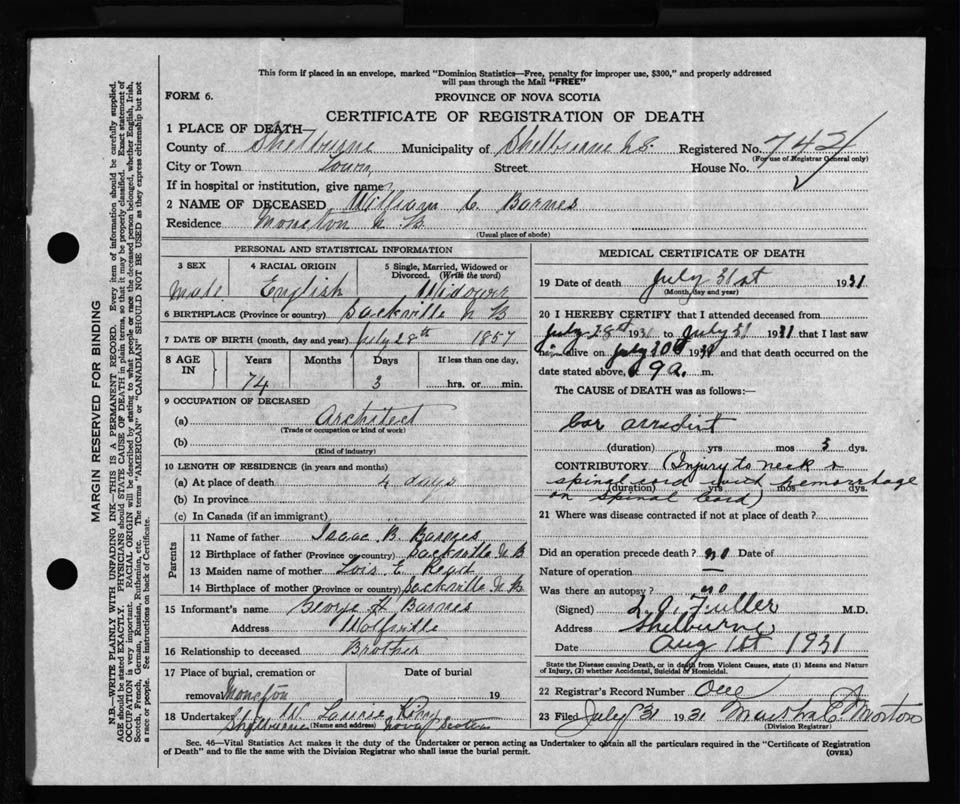 This form if placed in an envelope, marked "Dominion Statistics—Free, penalty for improper use, $300," and properly addressed
will pass through the Mail "FREE"
FORM 6.
PROVINCE OF NOVA SCOTIA
CERTIFICATE OF REGISTRATION OF DEATH
1 PLACE OF DEATH
County of Shelburne Municipality of Shelburne N.S. Registered No. 742
(For use of Registrar General only)
City or Town Town Street House No.
If in hospital or institution, give name
2 NAME OF DECEASED William C. Barnes
Residence Moncton N B
(Usual place of abode)
PERSONAL AND STATISTICAL INFORMATION
3 SEX 4 RACIAL ORIGIN 5 Single, Married, Widowed or Divorced. (Write the word)
Male English Widower
6 BIRTHPLACE (Province or country) Sackville N B
7 DATE OF BIRTH (month, day and year) July 28th 1857
8 AGE IN Years Months Days If less than one day,
74 3 hrs. or min.
9 OCCUPATION OF DECEASED
(a) Architect
(Trade or occupation or kind of work)
(b)
(Kind of industry)
10 LENGTH OF RESIDENCE (in years and months)
(a) At place of death 4 days
(b) In province
(c) In Canada (if an immigrant)
Parents
11 Name of father Isaac B. Barnes
12 Birthplace of father (Province or country) Sackville N B
13 Maiden name of mother Lois E. Read
14 Birthplace of mother (Province or country) Sackville N. B
15 Informant's name George H Barnes
Address Wolfville
16 Relationship to deceased Brother
17 Place of burial, cremation or removal Moncton Date of burial 19
18 Undertaker W. Laurie King
Shelburne (Name and address) Nova Scotia
MEDICAL CERTIFICATE OF DEATH
19 Date of death July 31st 1931
(Month, day and year)
20 I HEREBY CERTIFY that I attended deceased from
July 28th 1931 to July 31 1931 that I last saw
him alive on July 30th 1931 and that death occurred on the
date stated above, 9 a. m.
The CAUSE OF DEATH was as follows:—
Car accident
(duration) yrs mos 3 dys.
CONTRIBUTORY (Injury to neck &
spinal cord with hemorrhage
(duration) yrs mos dys.
on spinal cord)
21 Where was disease contracted if not at place of death?
Did an operation precede death? no
Nature of operation —
Was there an autopsy? no
(Signed) L. O. Fuller M.D.
Address Shelburne
Date Aug 1st 1931
State the Disease causing Death, or in death from Violent Causes, state (1) Means and Nature
of Injury, (2) whether Accidental, Suicidal or Homicidal.
22 Registrar's Record Number One
23 Filed July 31 1931 Martha C. Morton
(Division Registrar)
Sec. 46—Vital Statistics Act makes it the duty of the Undertaker or person acting as Undertaker to obtain all the particulars required in the "Certificate of Registration
of Death" and to file the same with the Division Registrar who shall issue the burial permit.
(OVER)
MARGIN RESERVED FOR BINDING
N.B.—WRITE PLAINLY WITH UNFADING INK—THIS IS A PERMANENT RECORD. Every item of information should be carefully supplied.
AGE should be stated EXACTLY. PHYSICIANS should STATE CAUSE OF DEATH in plain terms, so that it may be properly classified. Exact statement of
OCCUPATION is very important. RACIAL ORIGIN will be described by stating to what people or race the deceased person belonged, whether English, Irish,
Scotch, French, German, Russian, Ruthenian, etc. The terms "AMERICAN" or "CANADIAN" SHOULD NOT BE USED as they express citizenship but not
a race or people. See instructions on back of Certificate.